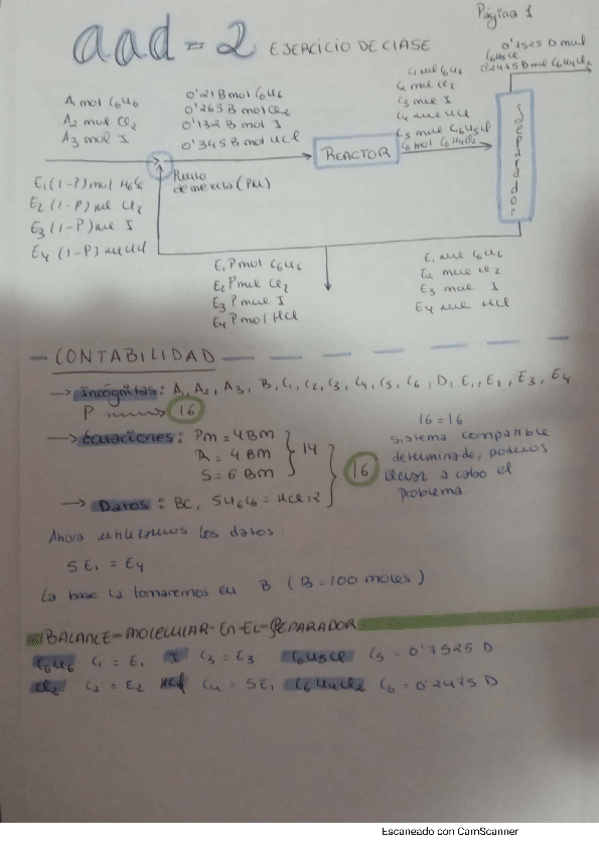 Página 1
aad = 2 EJERCICIO DE CLASE
A, mol C6H6
A2 mol Cl2
A3 mol I
0'21 B mol C6H6
0'263 B mol Cl2
0'132 B mol I
0'345 B mol HCl
REACTOR
C1 mol C6H6
C2 mol Cl2
C3 mol I
C4 mol HCl
C5 mol C6H5Cl
C6 mol C6H4Cl2
Separador
0'7525 D mol C6H5Cl
0'2475 D mol C6H4Cl2
Punto
de mezcla (PM)
E1 (1-P) mol
E2 (1-P) mol Cl2
E3 (1-P) mol I
E4 (1-P) mol HCl
E1 P mol C6H6
E2 P mol Cl2
E3 P mol I
E4 P mol HCl
E1 mol C6H6
E2 mol Cl2
E3 mol I
E4 mol HCl
- CONTABILIDAD
→ Incógnitas: A1, A2, A3, B, C1, C2, C3, C4, C5, C6, D, E1, E2, E3, E4
P 16
→ Ecuaciones: PM = 4 BM
R = 4 BM
S = 6 BM
14
→ Datos: BC, 5C6H6 = HCl = 2
16
16 = 16
sistema compatible
determinado, podemos
llevar a cabo el
problema.
Ahora utilizamos los datos:
5E1 = E4
La base la tomaremos en B (B = 100 moles)
BALANCE-MOLECULAR-EN-EL-SEPARADOR
C6H6 C1 = E1 I C3 = E3 C6H5Cl C5 = 0'7525 D
Cl2 C2 = E2 HCl C4 = 5E1 C6H4Cl2 C6 = 0'2475 D
Escaneado con CamScanner